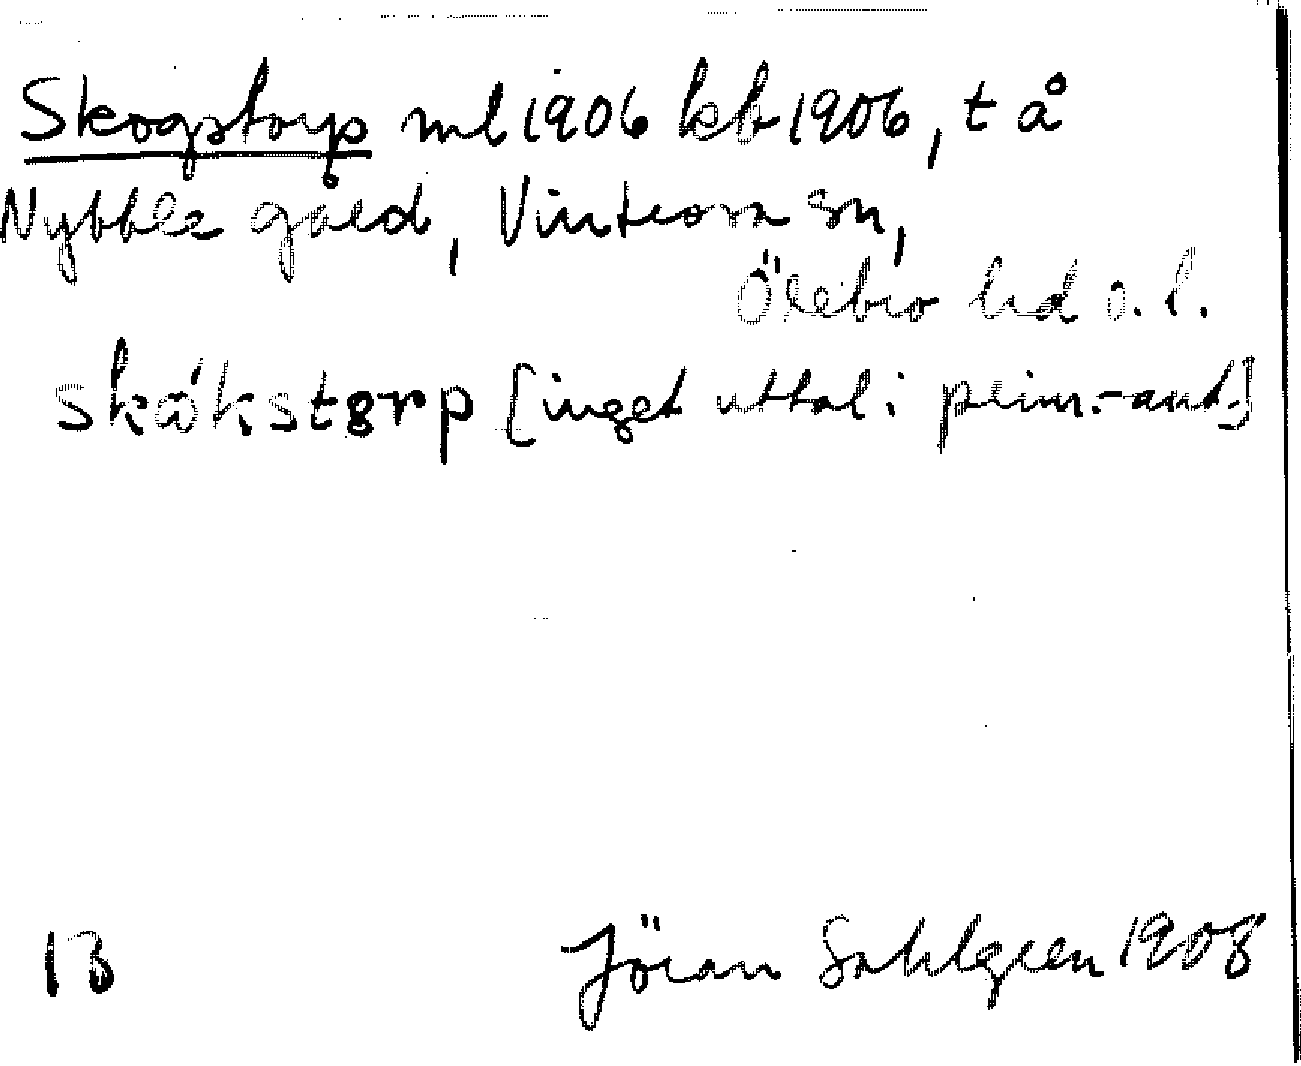 Skogstorp ml 1906 kb 1906, t å
Nybble gård, Vintrosa sn,
Örebro hd ö. l.
skåkstørp [inget uttal i prim.-ant.]
13
Jöran Sahlgren 1908